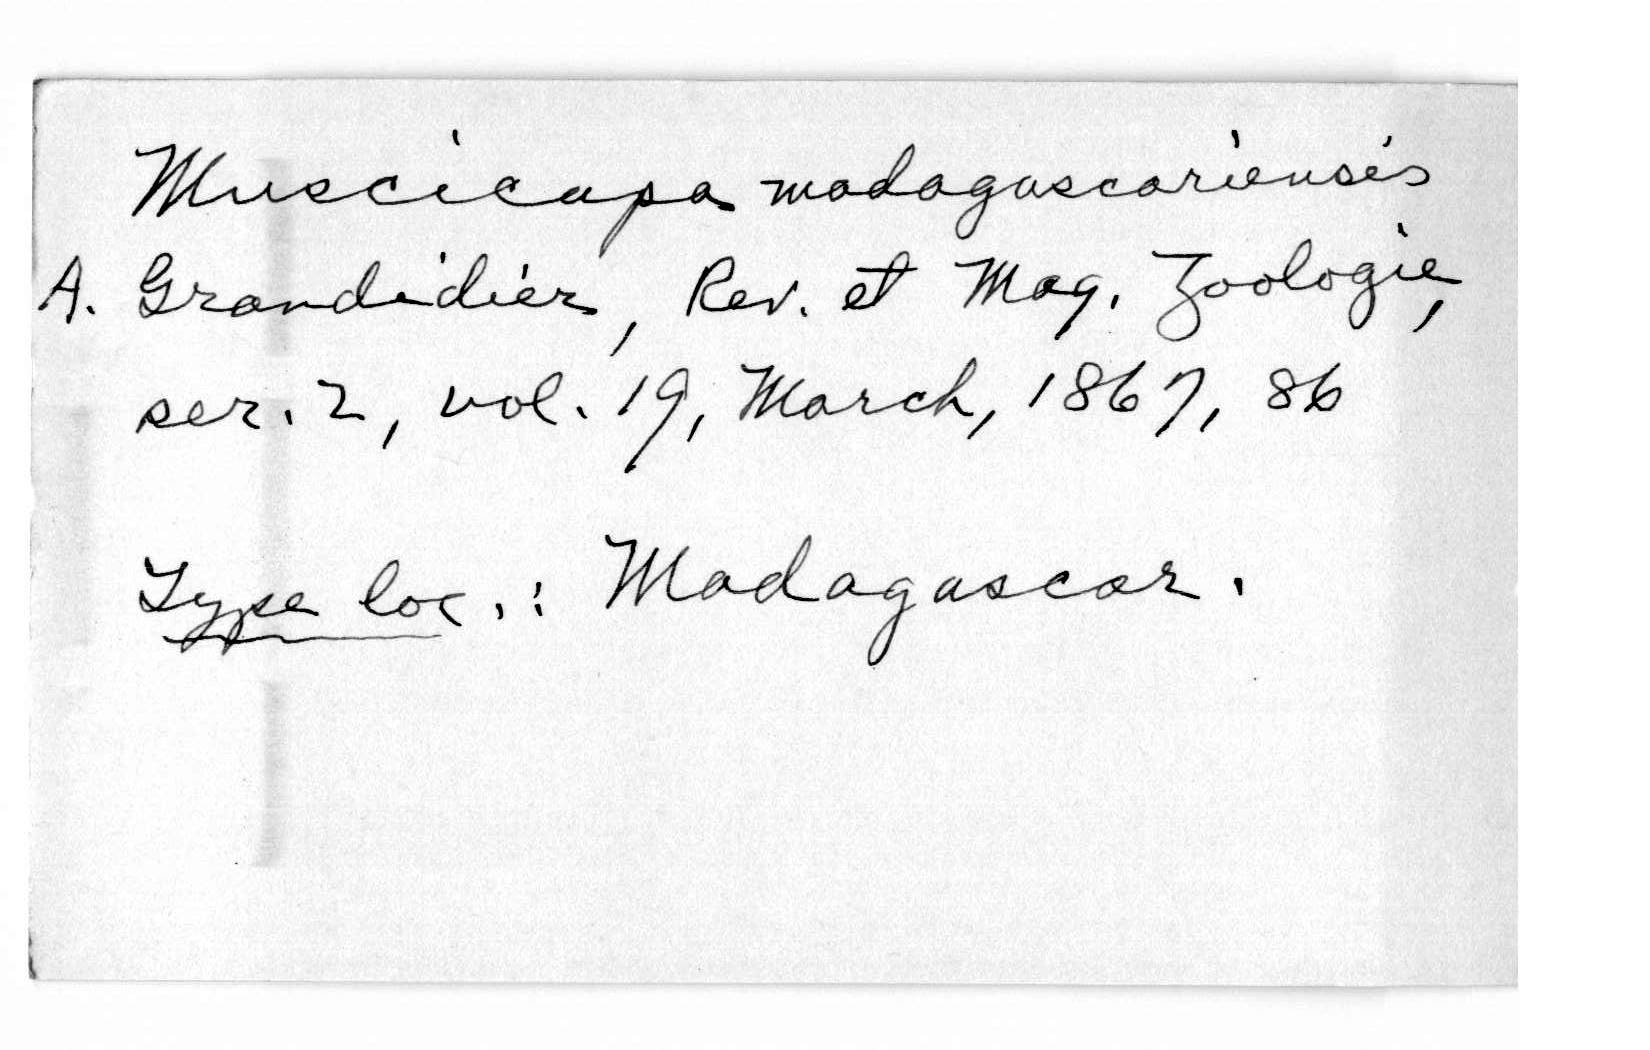 Muscicapa madagascariensis
A. Grandidier, Rev. et Mag. Zoologie,
ser. 2, vol. 19, March, 1867, 86
Type loc.: Madagascar.